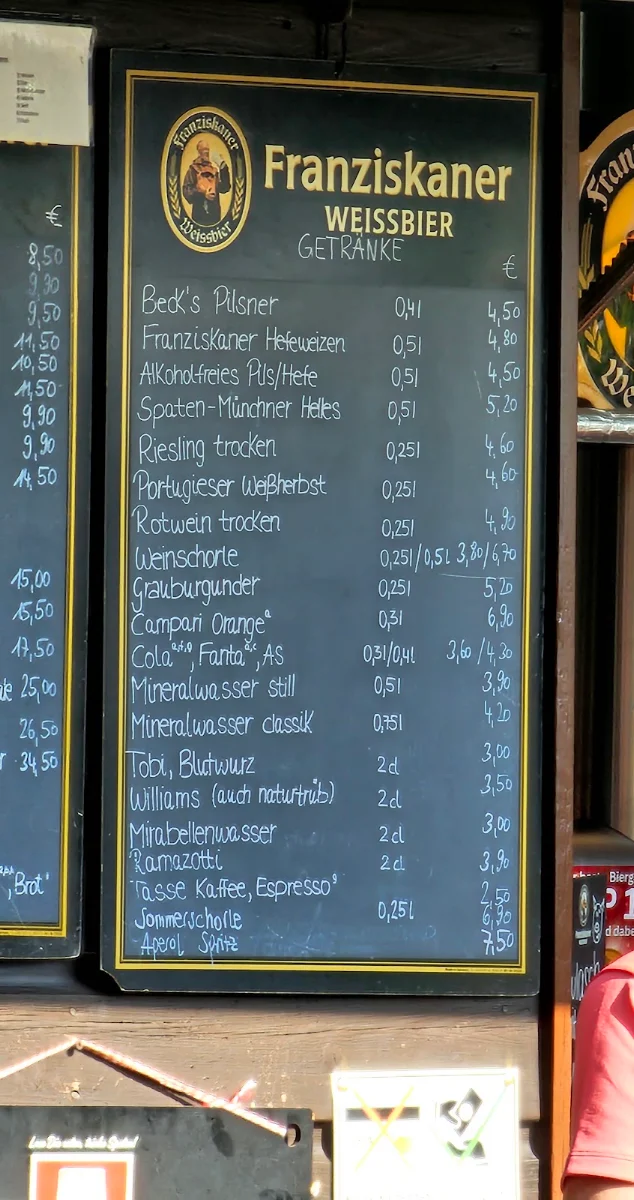 €
8,50
9,30
9,50
11,50
10,50
11,50
9,90
9,90
14,50
15,00
15,50
17,50
25,00
26,50
34,50
"Brot"
Franziskaner
Weissbier
Franziskaner
WEISSBIER
GETRÄNKE
€
Beck's Pilsner 0,4l 4,50
Franziskaner Hefeweizen 0,5l 4,80
Alkoholfreies Pils/Hefe 0,5l 4,50
Spaten-Münchner Helles 0,5l 5,20
Riesling trocken 0,25l 4,60
Portugieser Weißherbst 0,25l 4,60
Rotwein trocken 0,25l 4,90
Weinschorle 0,25l/0,5l 3,80/6,70
Grauburgunder 0,25l 5,20
Campari Orange 0,3l 6,90
Cola, Fanta, AS 0,3l/0,4l 3,60/4,30
Mineralwasser still 0,5l 3,90
Mineralwasser classik 0,75l 4,20
Tobi, Blutwurz 2cl 3,00
Williams (auch naturtrüb) 2cl 3,50
Mirabellenwasser 2cl 3,00
Ramazotti 2cl 3,90
Tasse Kaffee, Espresso 2,50
Sommerschorle 0,25l 6,90
Aperol Spritz 7,50
Bierg